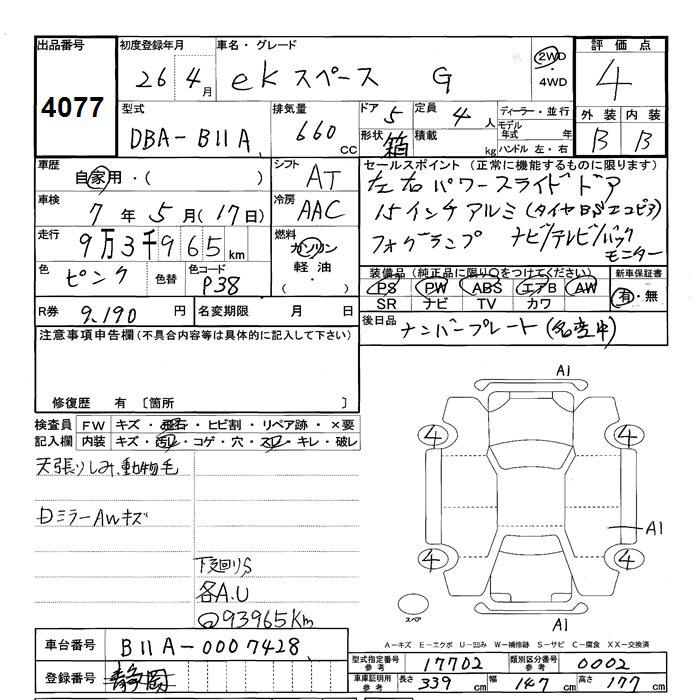 出品番号
4077
初度登録年月
26 4月
車名・グレード
eKスペース G
2WD
・
4WD
評価点
4
外装 内装
B B
型式
DBA-B11A
排気量
660 CC
ドア 5
定員 4人
形状 箱
積載 kg
ディーラー・並行
モデル年式 年
ハンドル 左・右
車歴
自家用・( )
シフト
AT
車検
7年5月(17日)
冷房
AAC
走行
9万3千965km
燃料
ガソリン
軽油・
( )
色
ピンク
色替
色コード
P38
R券
9.190円
名変期限 月 日
セールスポイント (正常に機能するものに限ります)
左右パワースライドドア
15インチアルミ(タイヤBSエコピア)
フォグランプ ナビ/テレビ/バック
モニター
装備品 (純正品に限り○をつけてください)
PS PW ABS エアB AW
SR ナビ TV カワ
新車保証書
有・無
後日品
ナンバープレート(名変中)
注意事項申告欄(不具合内容等は具体的に記入して下さい)
修復歴 有 〔箇所 〕
検査員
記入欄
FW キズ・飛石・ヒビ割・リペア跡・×要
内装 キズ・汚レ・コゲ・穴・スレ・キレ・破レ
天張りしみ,動物毛
ミラーAWキズ
下廻りS
各A.U
93965Km
A1
4 4
A1
4 4
A1
スペア
A-キズ E-エクボ U-凹み W-補修跡 S-サビ C-腐食 XX-交換済
車台番号
B11A-0007428
登録番号
静岡
型式指定番号
参考
17702
類別区分番号
参考
0002
車庫証明用
参考
長さ 339cm
幅 147cm
高さ 177cm